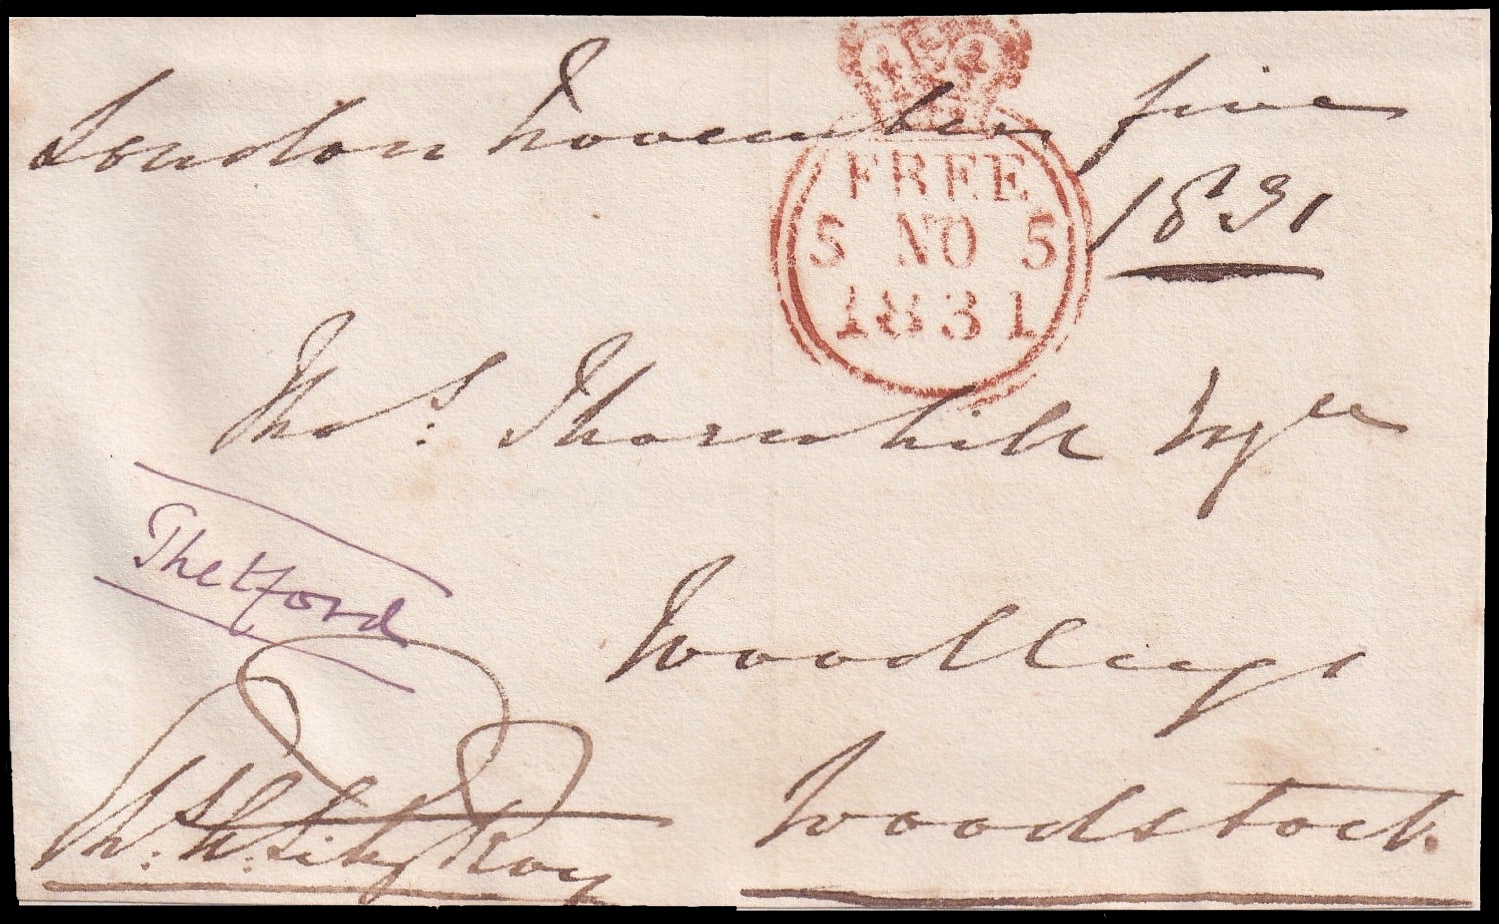 London November five
1831
FREE
5 NO 5
1831
Thos. Thornhill Esqre
Thetford
Woodleys
FitzRoy
Woodstock.